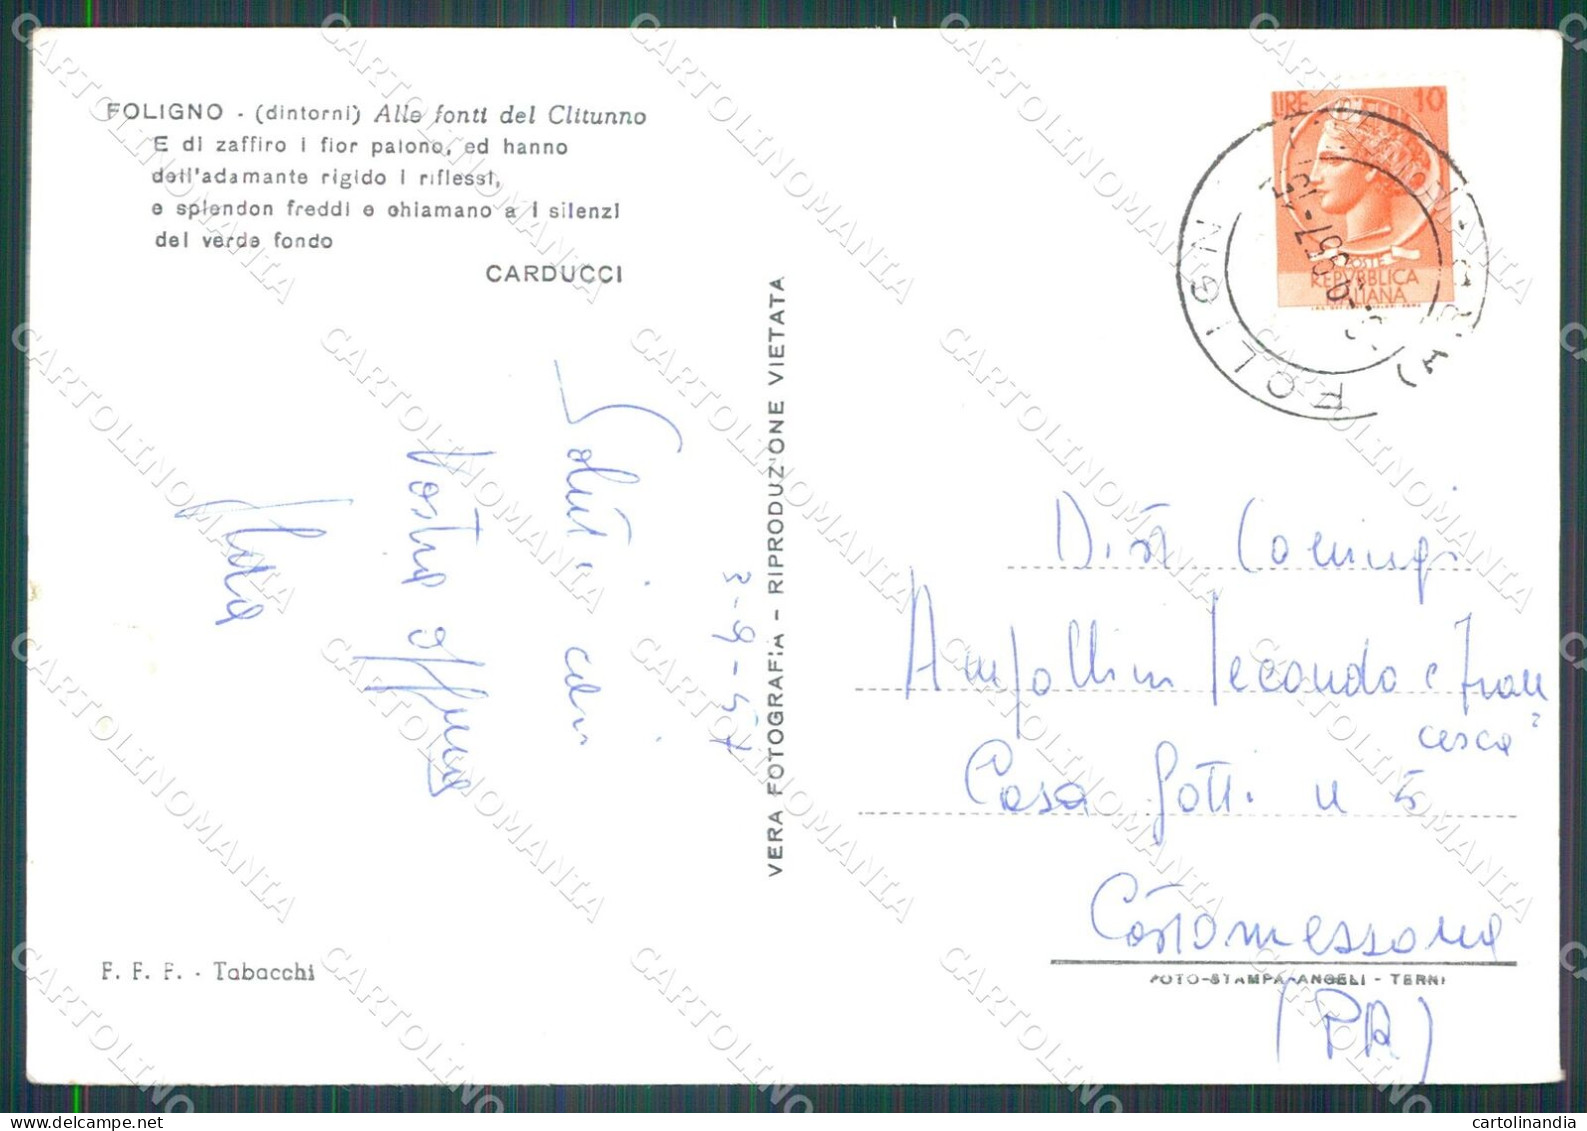 FOLIGNO - (dintorni) Alle fonti del Clitunno
E di zaffiro i fior paiono, ed hanno
dell'adamante rigido i riflessi,
e splendon freddi e chiamano a i silenzi
del verde fondo
CARDUCCI
3-9-57
Saluti cari
Vostra
F. F. F. - Tabacchi
VERA FOTOGRAFIA - RIPRODUZIONE VIETATA
LIRE 10
POSTE
REPVBBLICA
ITALIANA
FOLIGN
Coniugi
Secondo e Fran
cesca
Casa Gotti n 5
(PR)
FOTO-STAMPA-ANGELI - TERNI
CARTOLINOMANIA
cartolinandia